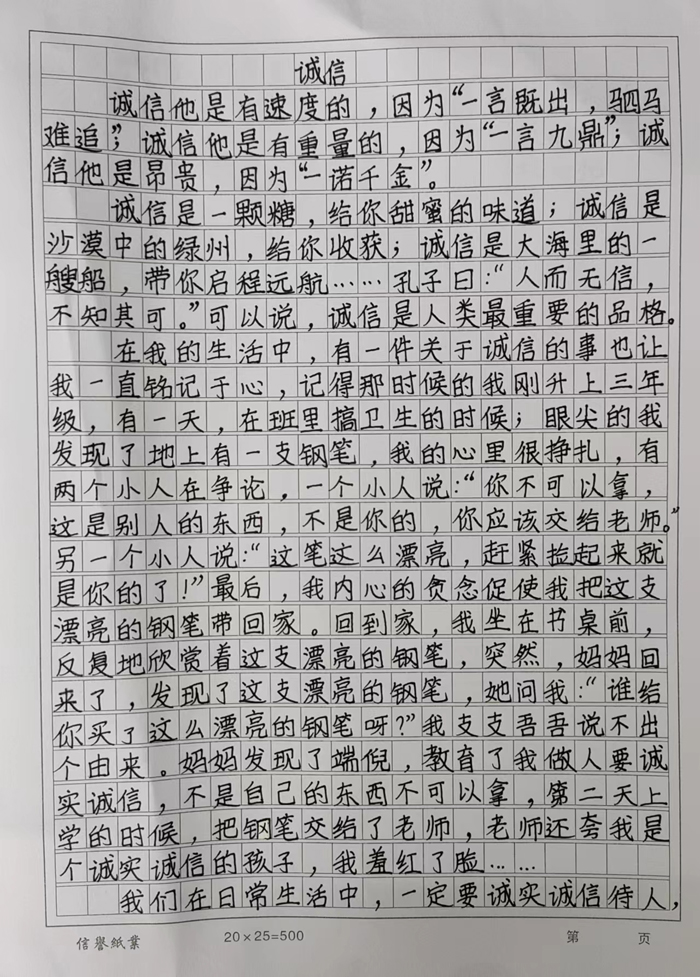 诚信
诚信他是有速度的，因为“一言既出，驷马
难追”；诚信他是有重量的，因为“一言九鼎”；诚
信他是昂贵，因为“一诺千金”。
诚信是一颗糖，给你甜蜜的味道；诚信是
沙漠中的绿州，给你收获；诚信是大海里的一
艘船，带你启程远航……孔子曰：“人而无信，
不知其可。”可以说，诚信是人类最重要的品格。
在我的生活中，有一件关于诚信的事也让
我一直铭记于心，记得那时候的我刚升上三年
级，有一天，在班里搞卫生的时候；眼尖的我
发现了地上有一支钢笔，我的心里很挣扎，有
两个小人在争论，一个小人说：“你不可以拿，
这是别人的东西，不是你的，你应该交给老师。”
另一个小人说：“这笔这么漂亮，赶紧捡起来就
是你的了！”最后，我内心的贪念促使我把这支
漂亮的钢笔带回家。回到家，我坐在书桌前，
反复地欣赏着这支漂亮的钢笔，突然，妈妈回
来了，发现了这支漂亮的钢笔，她问我：“谁给
你买了这么漂亮的钢笔呀？”我支支吾吾说不出
个由来。妈妈发现了端倪，教育了我做人要诚
实诚信，不是自己的东西不可以拿，第二天上
学的时候，把钢笔交给了老师，老师还夸我是
个诚实诚信的孩子，我羞红了脸……
我们在日常生活中，一定要诚实诚信待人，
信誉紙業 20×25=500 第 页